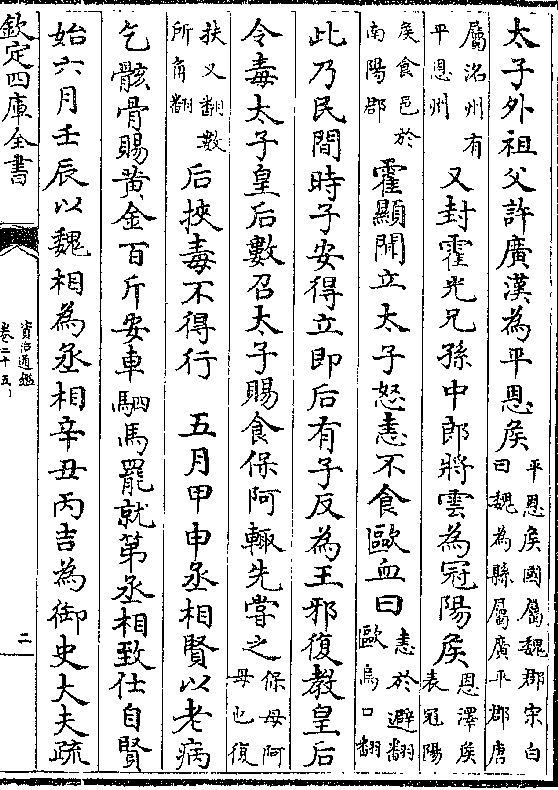 太子外祖父許廣漢為平恩侯平恩侯國屬魏郡宋白曰魏為縣屬廣平郡唐
屬洺州有平恩州又封霍光兄孫中郎將雲為冠陽侯恩澤侯表冠陽
侯食邑於南陽郡霍顯聞立太子怒恚不食歐血曰恚於避翻歐烏口翻
此乃民間時子安得立即后有子反為王邪復教皇后
令毒太子皇后數召太子賜食保阿輒先嘗之保母阿母也復
扶又翻數所角翻后挾毒不得行 五月甲申丞相賢以老病
乞骸骨賜黄金百斤安車駟馬罷就第丞相致仕自賢
始六月壬辰以魏相為丞相辛丑丙吉為御史大夫疏
欽定四庫全書
資治通鑑
卷二十五
二